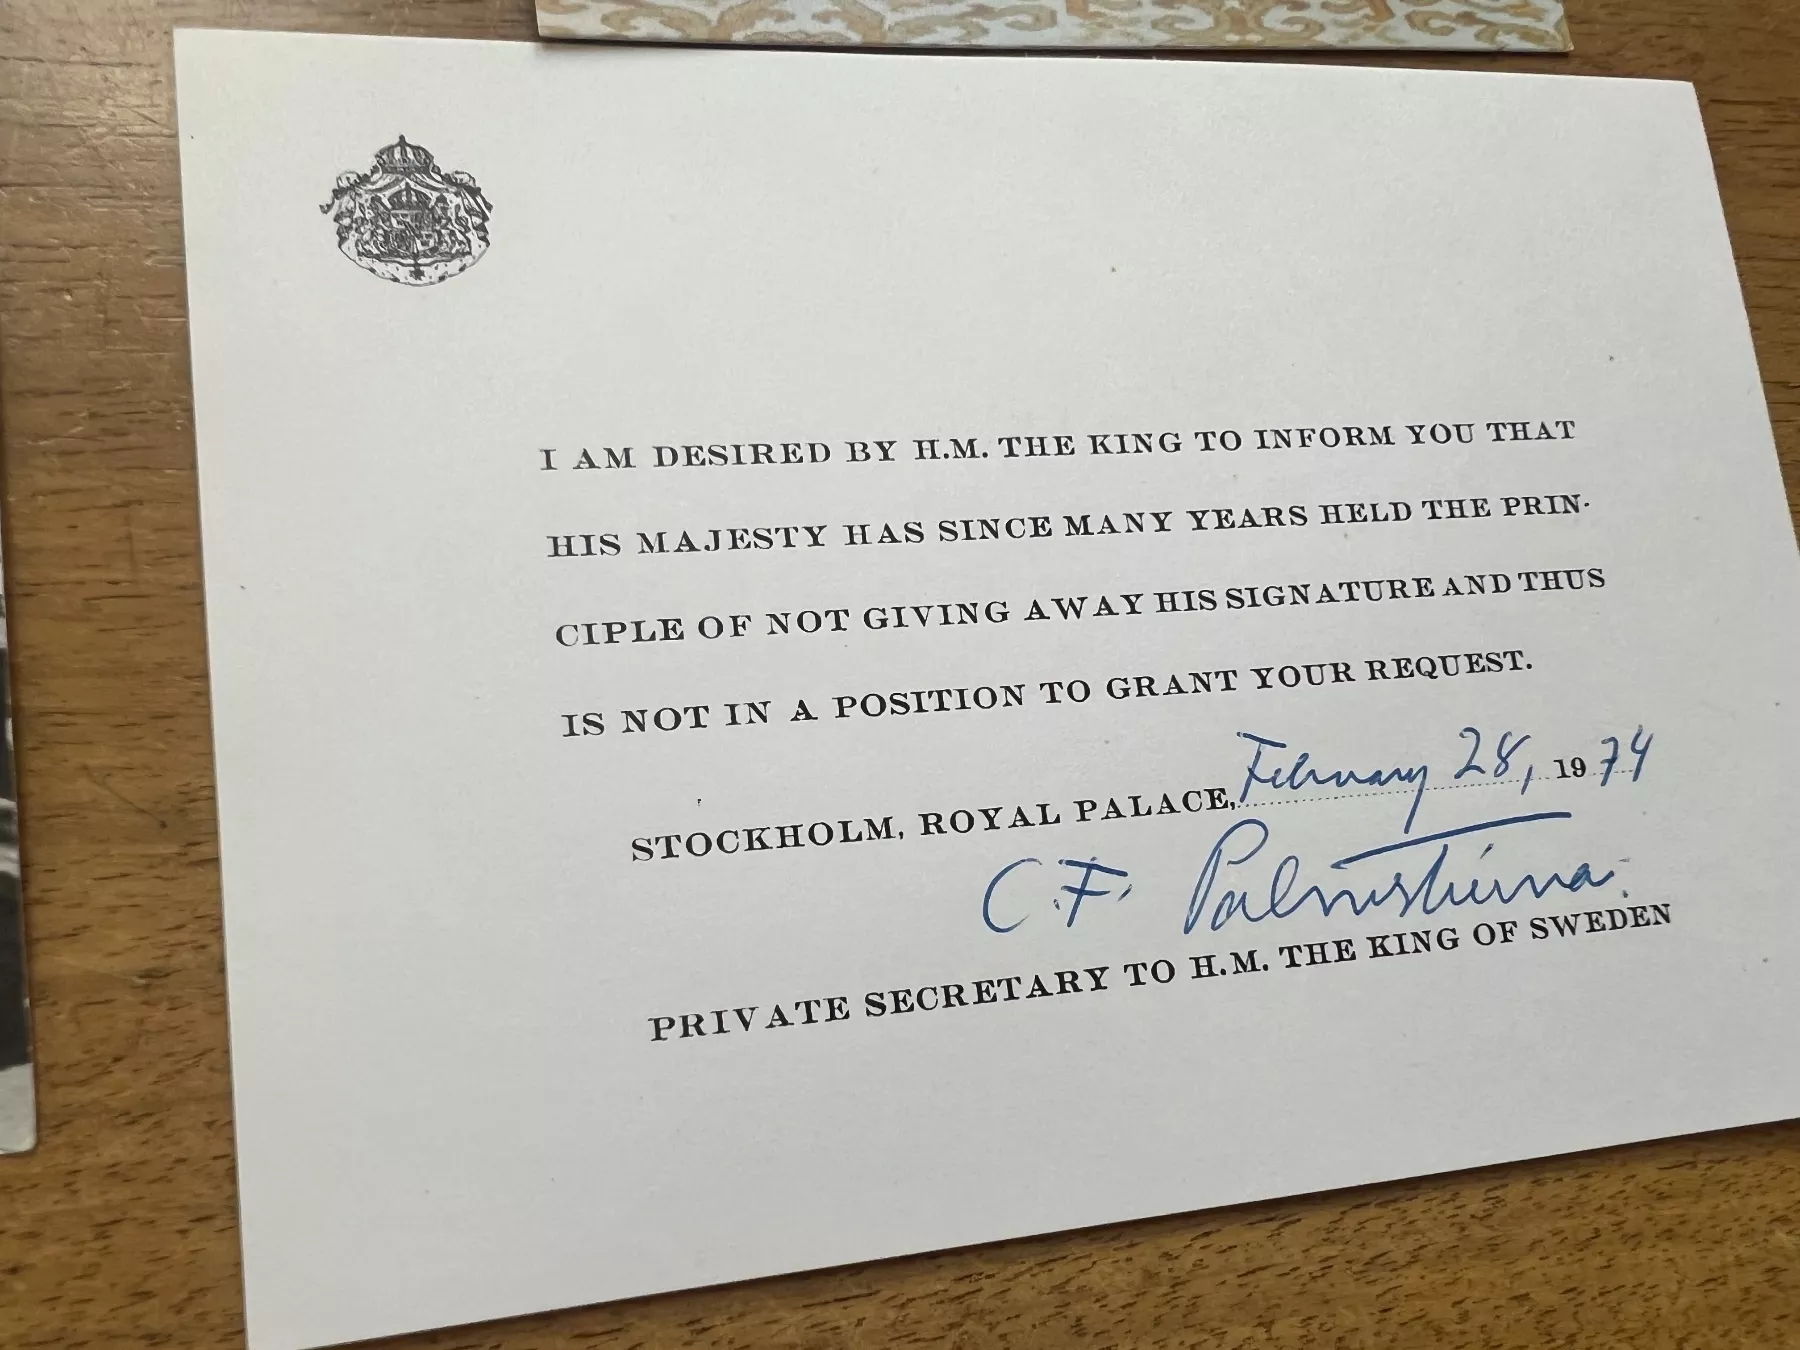 I AM DESIRED BY H.M. THE KING TO INFORM YOU THAT
HIS MAJESTY HAS SINCE MANY YEARS HELD THE PRIN-
CIPLE OF NOT GIVING AWAY HIS SIGNATURE AND THUS
IS NOT IN A POSITION TO GRANT YOUR REQUEST.
STOCKHOLM, ROYAL PALACE, February 28, 1974
C.F. Palmstierna.
PRIVATE SECRETARY TO H.M. THE KING OF SWEDEN